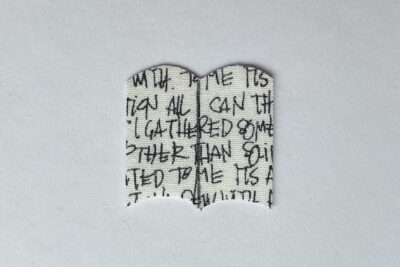 WITH. TO ME ITS
TION ALL I CAN TH
I GATHERED SOME
OTHER THAN SOLI
TED TO ME ITS A
WITH